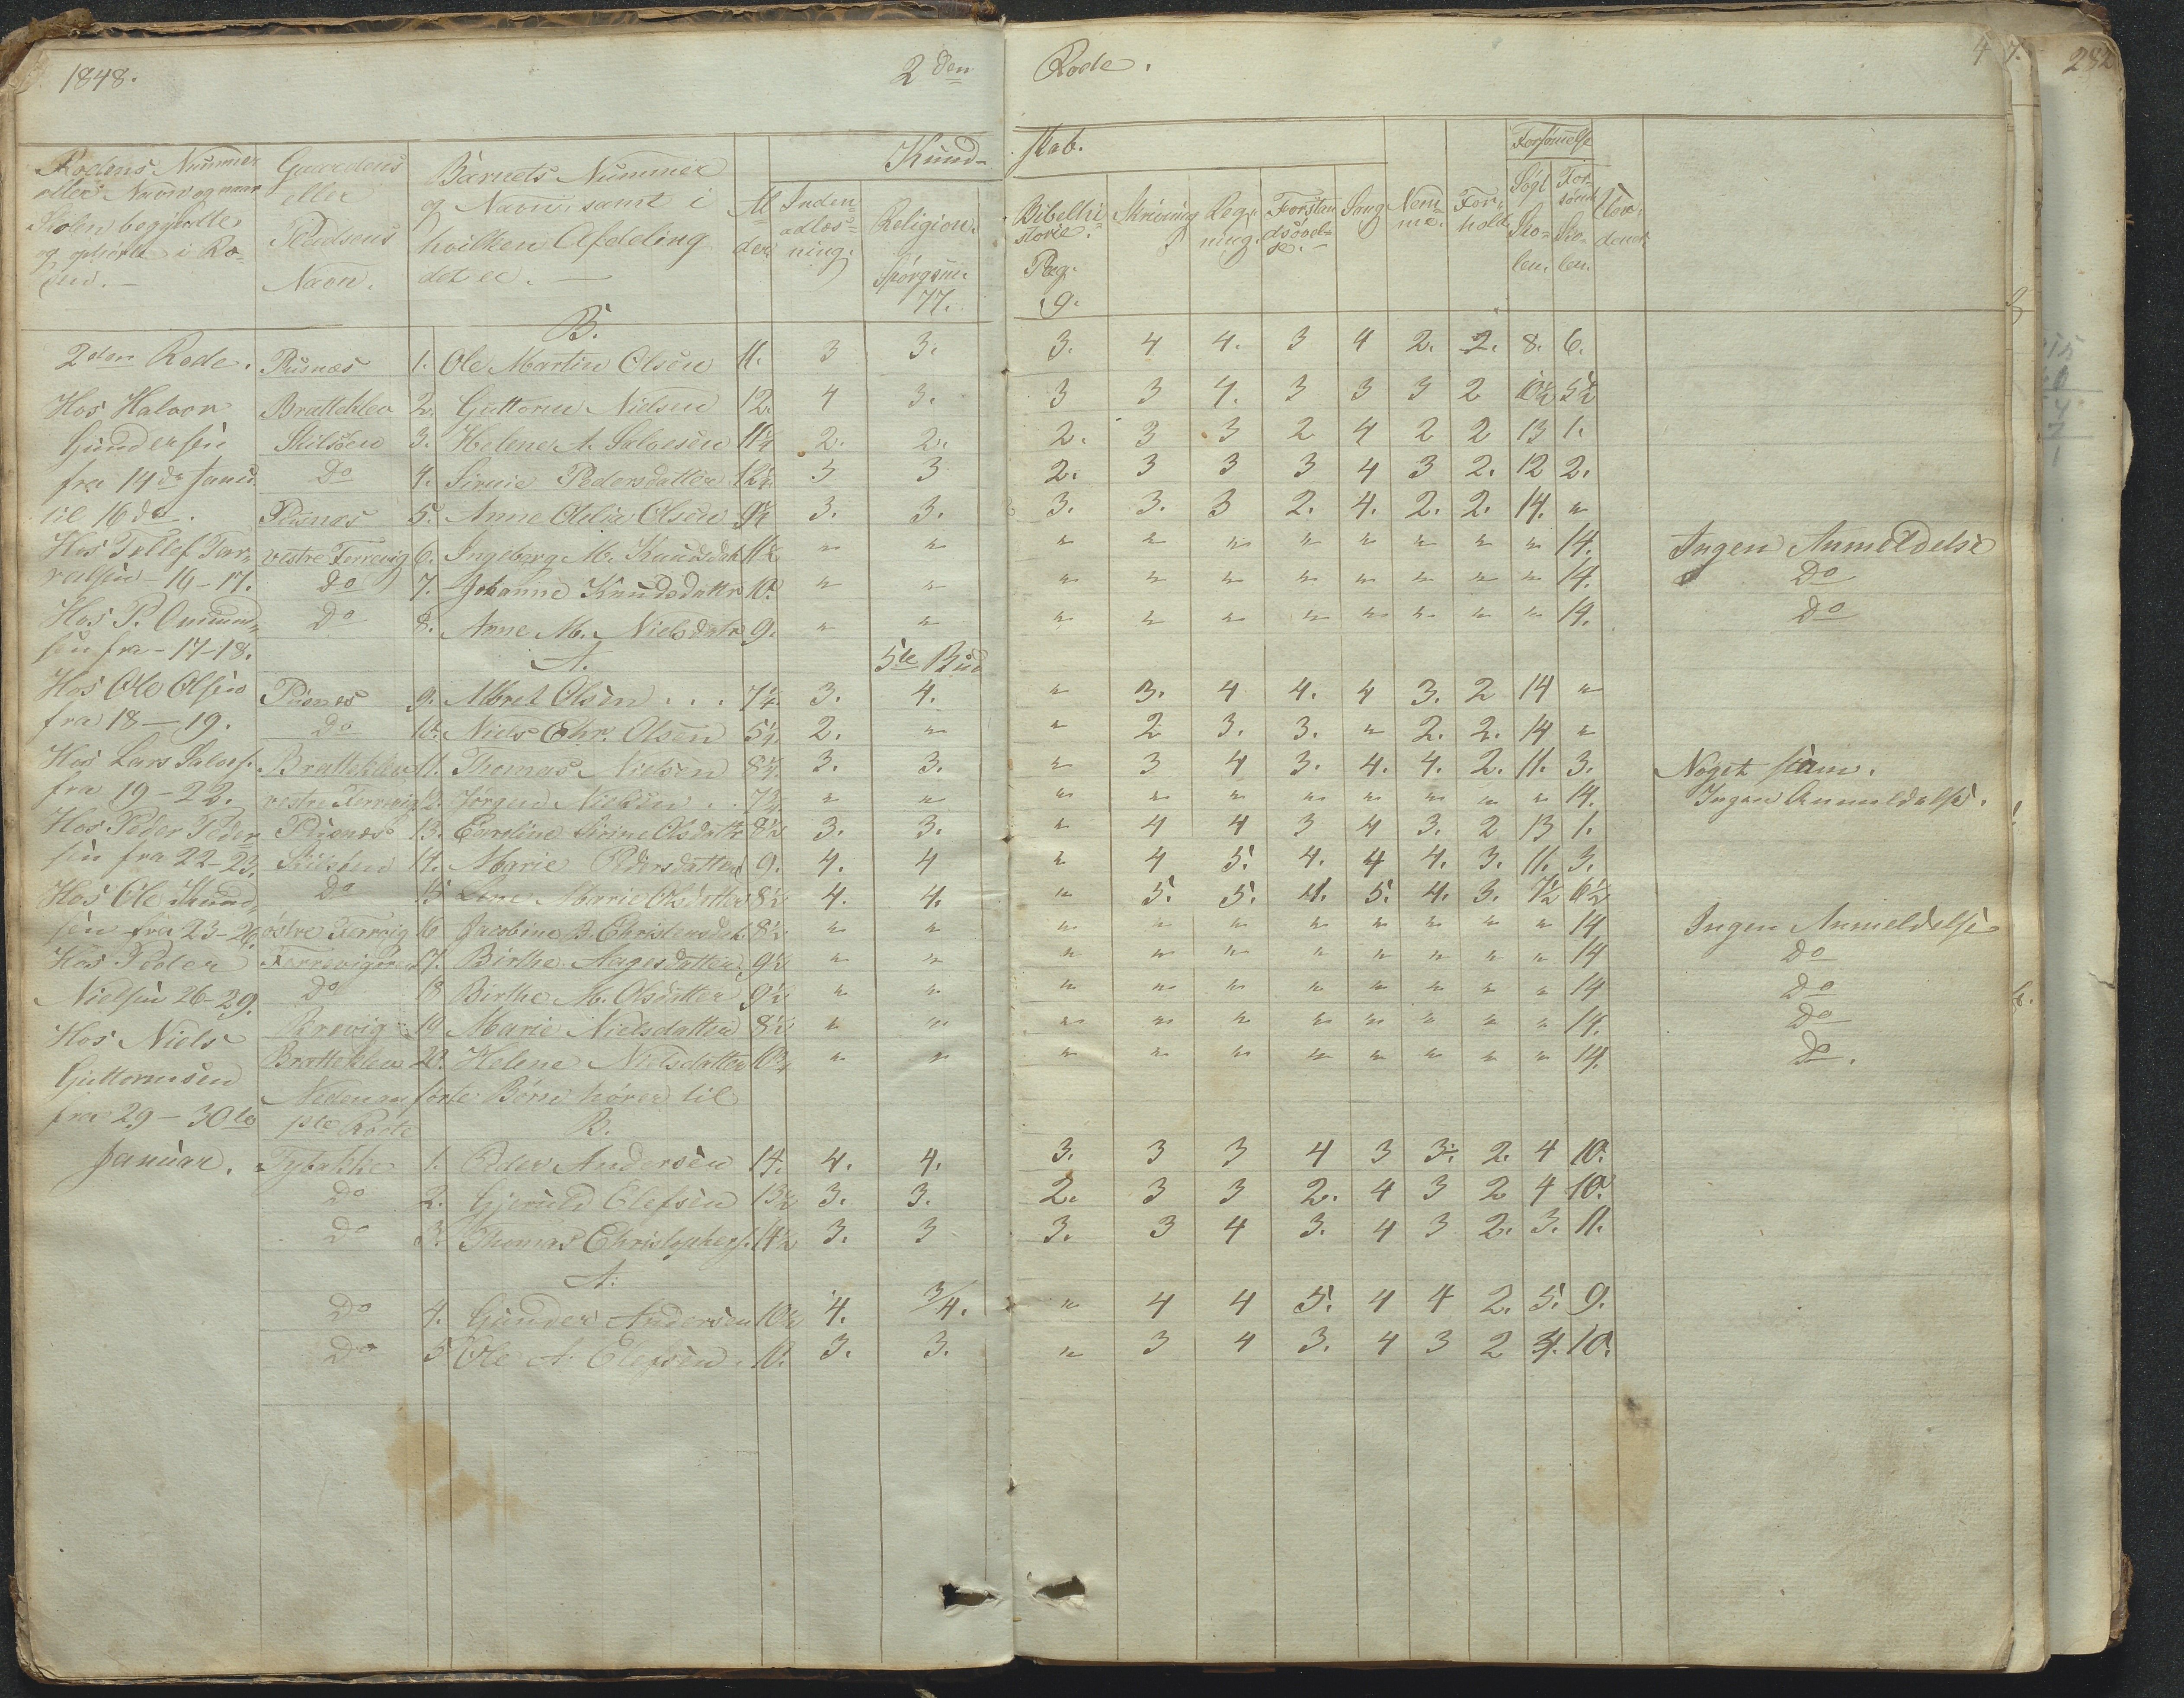 1848. 2den Rode. 4 7. 282
Rodens Nummer eller Navn og naar Skolen begyndte og ophörte i Roden.
Gaardens eller Pladsens Navn.
Barnets Nummer og Navn, samt i hvilken Afdeling det er.
Alder
Kundskab.
Inden adlæsning.
Religion. Spörgsm. 77.
Bibelhistorie. Pag. 9.
Skrivning
Regning.
Forstandsövelse.
Sang
Nemme.
Forhold
Forsömelse
Sögt Skolen.
Forsömt Skolen.
B.
2den Rode. Pusnes 1. Ole Martin Olsen 11. 3 3. 3. 4 4. 3 4 2. 2. 8. 6.
Hos Halvor Brattekleo 2. Guttorm Nielsen 12. 4 3. 3 3 4. 3 3 3 2 10½ 5½
Gundersen Skilsöen 3. Helene A. Salvesen 11¼ 2. 2. 2. 3 3 2 4 2 2 13 1.
fra 14de Janu. Do 4. Sirnie Pedersdatter 12½ 3 3 2. 3 3 3 4 3 2. 12 2.
til 16de. Pusnes 5. Anne Oelie Olsen 9½ 3. 3. 3. 3. 3 2. 4. 2. 2. 14. "
Hos Tellef Tar- vestre Terrevig 6. Ingeborg M. Knudsdat. 11½ " " " " " " " " " " 14. Ingen Anmeldelse
ralsen - 16 - 17. Do 7. Johanne Knudsdattr 10. " " " " " " " " " " 14. Do
Hos P. Onund- Do 8. Anne M. Nielsdatr 9. " " " " " " " " " " 14. Do
sen fra - 17-18. A. 5te Bud
Hos Ole Olsen Pusnes 9. Albret Olsen . . . 7¼. 3. 4. " 3. 4 4. 4 3. 2 14 "
fra 18 - 19. Do 10. Niels Chr. Olsen 5¼. 2. " " 2 3. 3. " 2. 2. 14 "
Hos Lars Salves. Brattekleo 11. Thomas Nielsen 8¼. 3. 3. " 3 4 3. 4. 4. 2. 11. 3. Noget stam.
fra 19 - 22. vestre Terrevig 12. Jörgen Nielsen . . 7¾ " " " " " " " " " " 14. Ingen Anmeldelse.
Hos Peder Peder- Pusnes 13. Caroline Sirine Olsdattr 8½ 3. 3. " 4 4 3 4 3. 2 13 1.
sen fra 22-23. Skilsöen 14. Marie Pedersdatter 9. 4. 4 " 4 5. 4. 4 4. 3. 11. 3.
Hos Ole Knud- Do 15 Lene Marie Olsdatter 8½ 4. 4. " 5. 5. 4. 5. 4. 3. 7½ 6½
sen fra 23-26. östre Terrvig 16 Jacobine B. Christensdat. 8½ " " " " " " " " " " 14 Ingen Anmeldelse
Hos Peder 17. Birthe Aagesdatter 9½ " " " " " " " " " " 14 Do
Nielsen 26-29. Do 18 Birthe M. Olsdatter 9½ " " " " " " " " " " 14 Do
Hos Niels 19 Marie Nielsdatter 8½ " " " " " " " " " " 14. Do
Guttormsen Brattekleo 20. Helene Nielsdatter 10¾ " " " " " " " " " " 14. Do.
fra 29 - 30te Nedenanförte Börn hörer til
1ste Rode B.
Januar. Tybakke 1. Peder Andersen 14. 4. 4. 3. 3 3 4 3 3. 2. 4 10.
Do 2. Gjeruld Elefsen 13½ 3. 3. 2. 3 3 2. 4 3 2 4 10.
Do 3. Thomas Christophers. 11½ 3. 3 3. 3 4 3. 4 3 2. 3. 11.
A.
Do 4. Gunder Andersen 10½ 4. 3/4. " 4 4 5. 4 4 2. 5. 9.
Do 5 Ole A. Elefsen. 10. 3. 3. " 3 4 3. 4 3 2 4. 10.